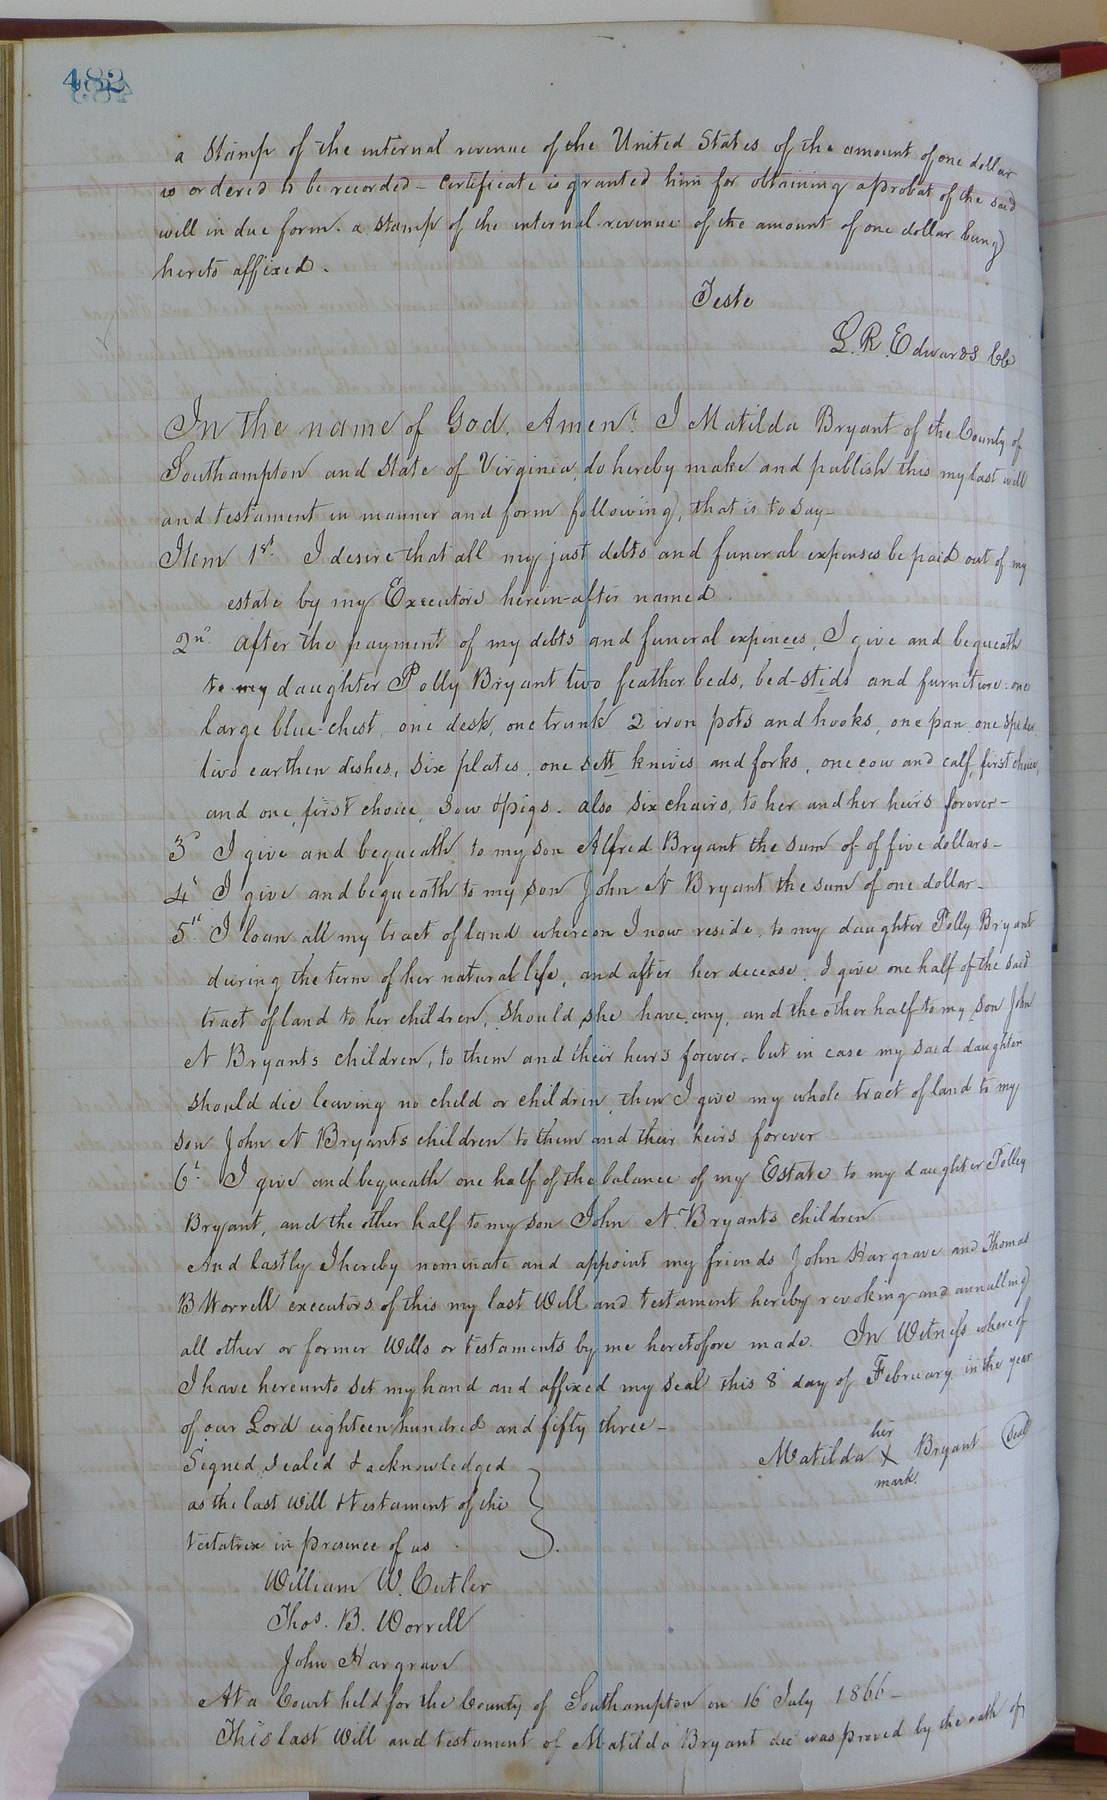 482
a stamp of the internal revenue of the United States of the amount of one dollar
is ordered to be recorded - Certificate is granted him for obtaining a probat of the said
will in due form. a stamp of the internal revenue of the amount of one dollar being
hereto affixed.
Teste
L. R. Edwards Clk
In the name of God. Amen. I Matilda Bryant of the County of
Southampton and State of Virginia, do hereby make and publish this my last will
and testament in manner and form following, that is to say -
Item 1st. I desire that all my just debts and funeral expenses be paid out of my
estate by my Executors herein-after named.
2nd. after the payment of my debts and funeral expences, I give and bequeath
to my daughter Polly Bryant two feather beds, bed-stids and furniture - one
large blue-chest, one desk, one trunk 2 iron pots and hooks, one pan one spider
two earthen dishes, six plates, one sett knives and forks, one cow and calf, first choice,
and one, first choice, sow & pigs. also six chairs, to her and her heirs forever -
3d I give and bequeath to my son Alfred Bryant the sum of of five dollars -
4t I give and bequeath to my son John N Bryant the sum of one dollar -
5th I loan all my tract of land whereon I now reside, to my daughter Polly Bryant
during the term of her natural life, and after her decease, I give one half of the said
tract of land to her children, should she have any, and the other half to my son John
N Bryants children, to them and their heirs forever - but in case my said daughter
should die leaving no child or children, then I give my whole tract of land to my
son John N Bryants children to them and their heirs forever
6t. I give and bequeath one half of the balance of my Estate to my daughter Polley
Bryant, and the other half to my son John N. Bryants children
And lastly I hereby nominate and appoint my friends John Hargrave and Thomas
B Worrell executors of this my last Will and testament hereby revoking and annulling
all other or former Wills or testaments by me heretofore made. In Witness whereof
I have hereunto set my hand and affixed my seal this 8t day of February in the year
of our Lord eighteen hundred and fifty three -
Signed, sealed & acknowledged
as the last will & testament of the
testatrix in presence of us
her
Matilda X Bryant (seal)
mark
William W. Cutler
Thos. B. Worrell
John Hargrave
At a Court held for the County of Southampton on 16t July 1866 -
This last Will and testament of Matilda Bryant decd was proved by the oath of